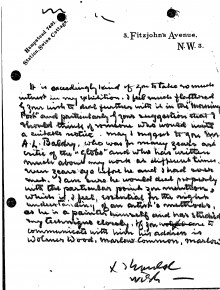 Hampstead 7401
Station: Swiss Cottage
3. Fitzjohn's Avenue,
N.W. 3.
It is exceedingly kind of you to take so much
interest in my exhibition. I feel much flattered
by your wish to deal further with it in the Morning
Post and particularly of your suggestion that I
should think of someone who would write
a suitable notice. May I suggest to you Mr
A. L. Baldry, who was for many years art
critic of the "Globe" and who has written
much about my work at different times.
even years ago before he and I had ever
met. I am sure he would deal properly
with the particular point you mention &
which is, I feel, essential for the right
understanding of an artist's methods,
as he is a painter himself and has studied
my technique closely. If you care to
communicate with him his address is
Wolmer Wood, Marlow Common, Marlow